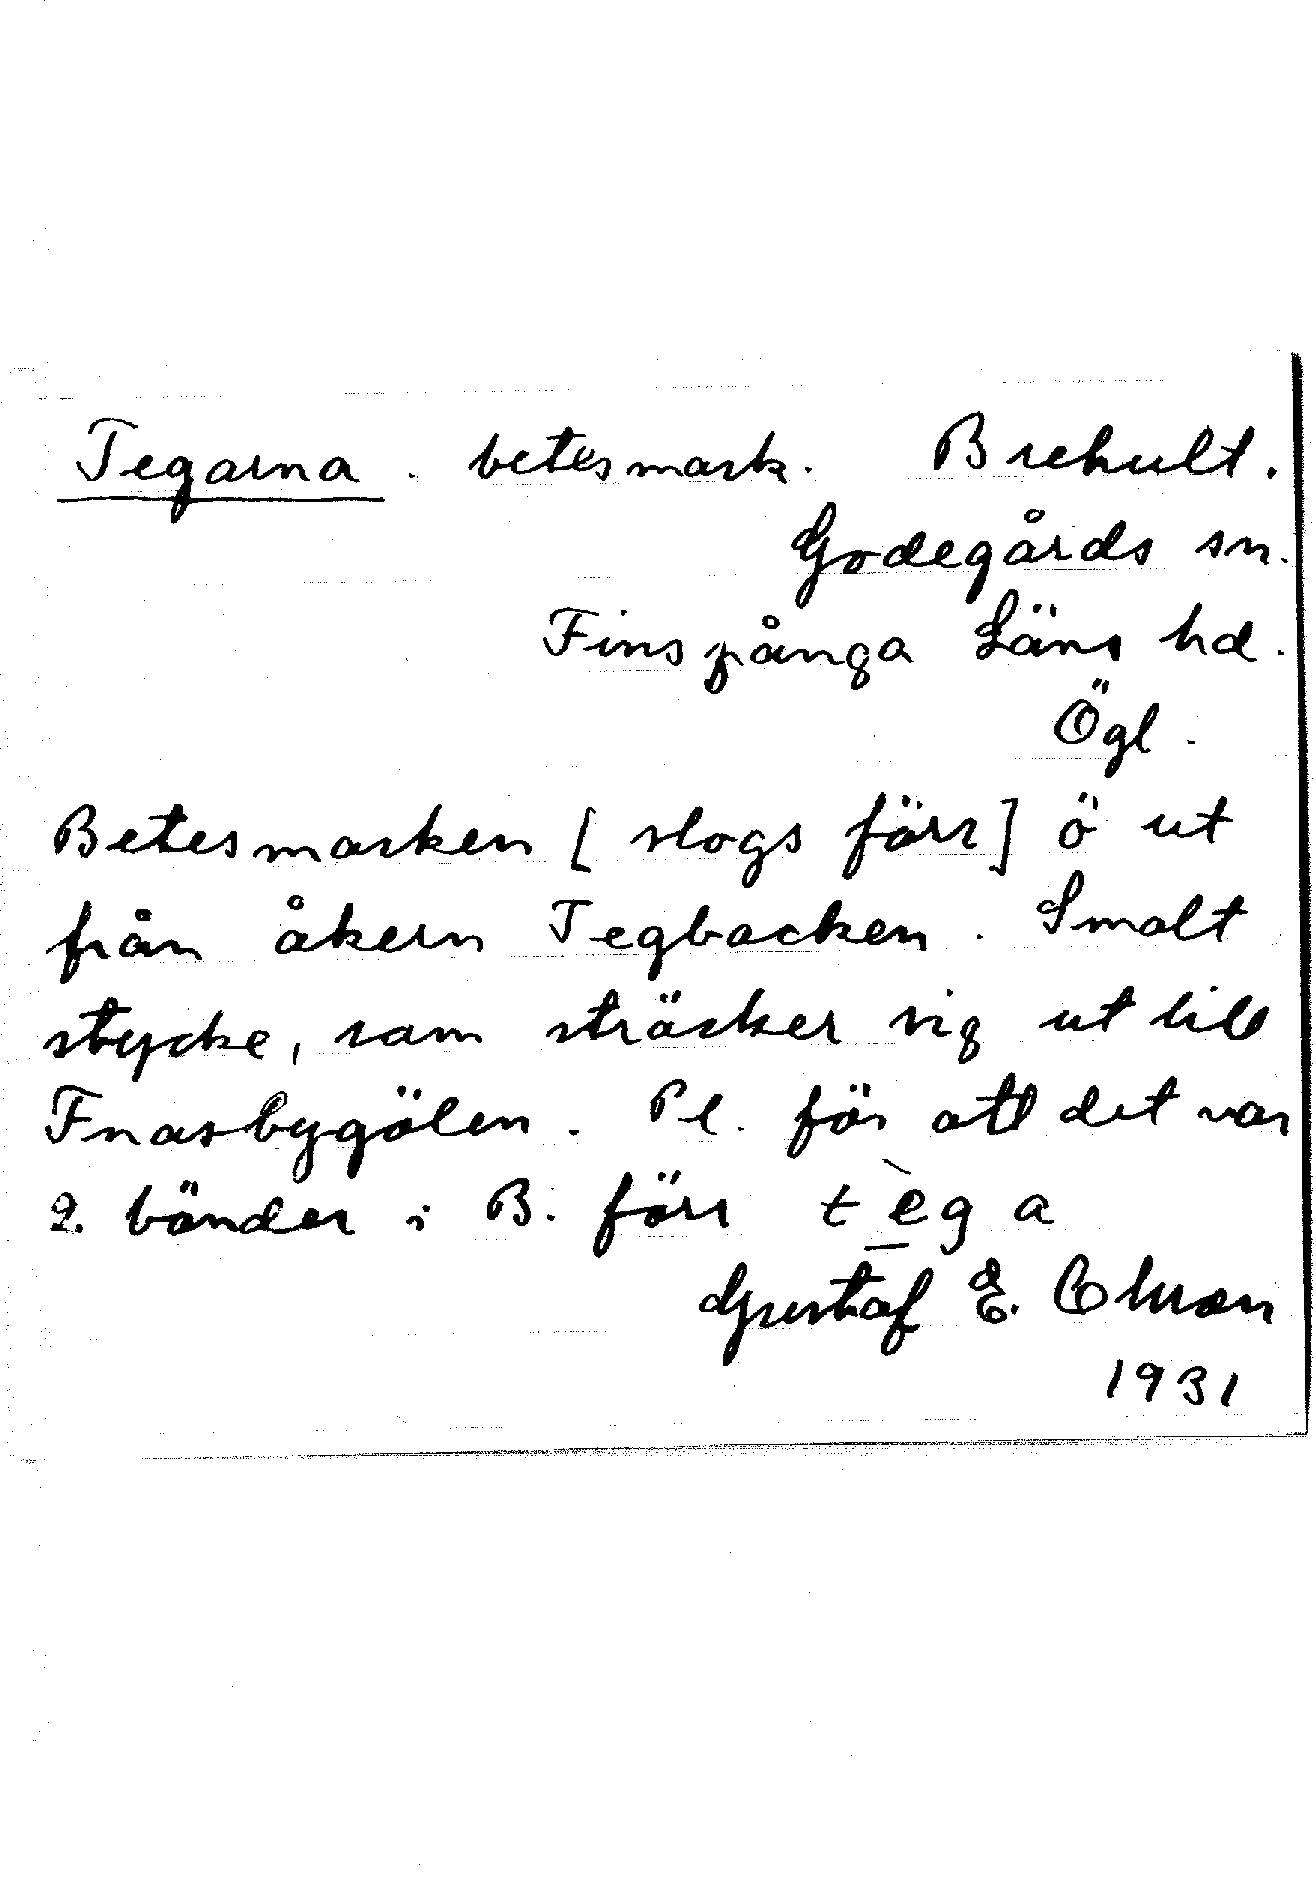 Tegarna. betesmark. Brekult.
Godegårds sn.
Finspånga Läns hd.
Ögl.
Betesmarken [slogs förr] ö ut
från åkern Tegbacken. Smalt
stycke, som sträcker sig ut till
Fnasbygölen. Pl. för att det var
2. bönder i B. förr tèga
Gustaf E. Olson
1931